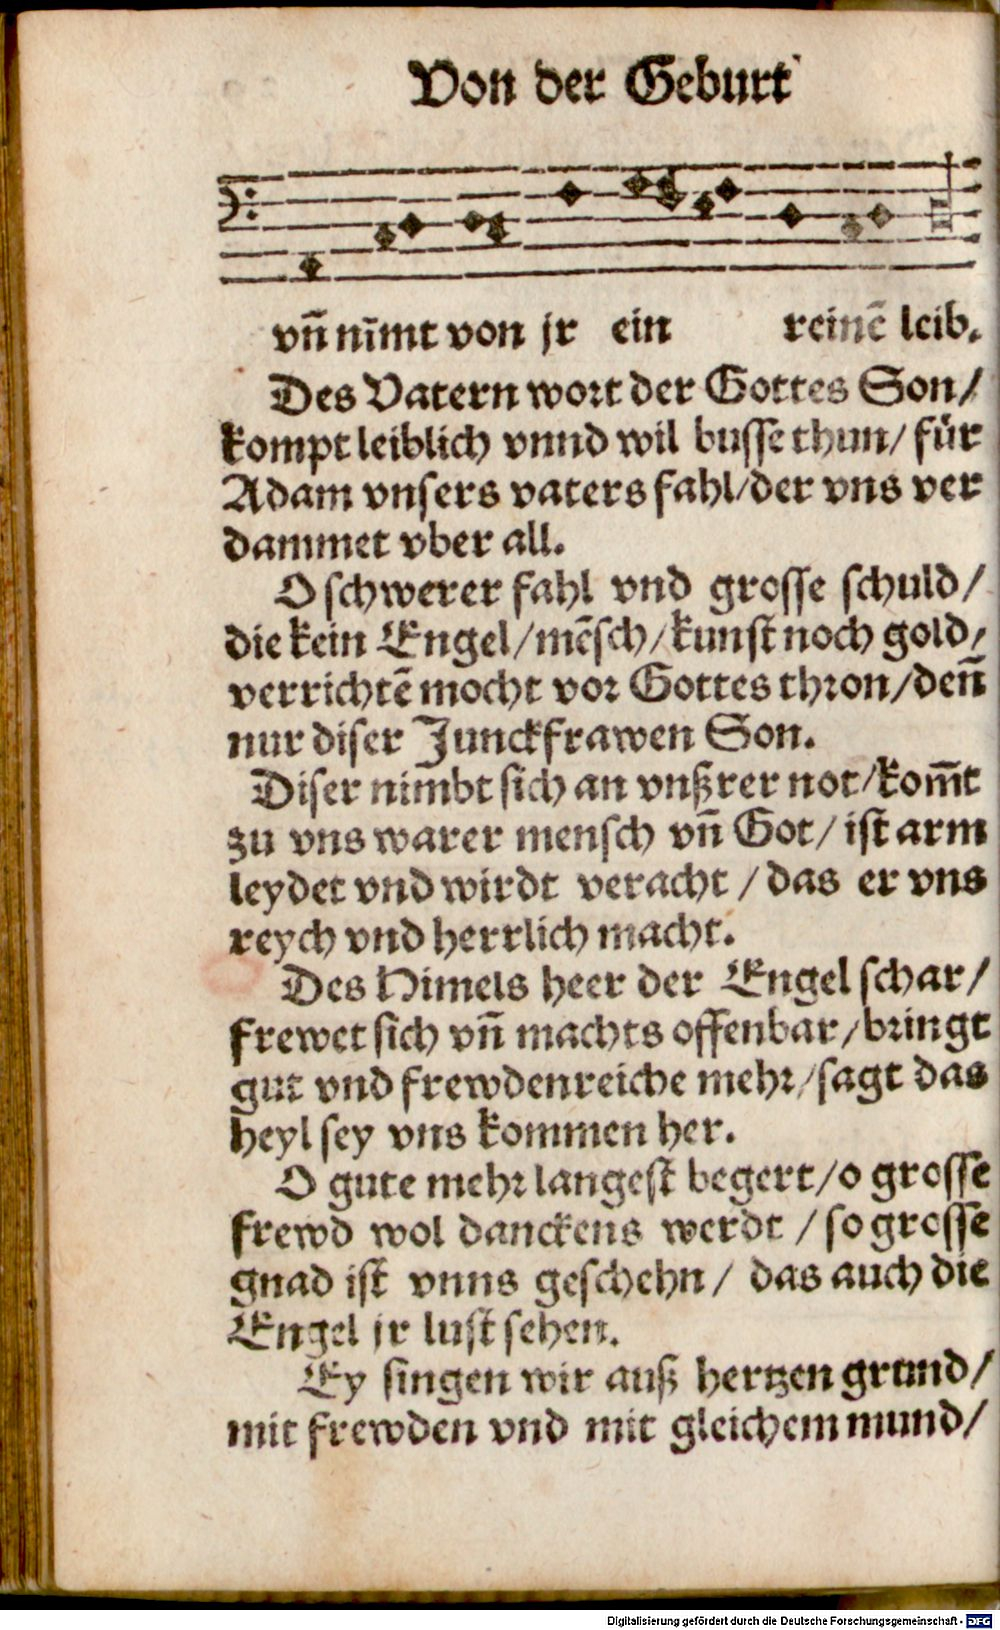 Von der Geburt
vñ nim̃t von jr ein reinẽ leib.
Des Vatern wort der Gottes Son/
kompt leiblich vnnd wil busse thun/ für
Adam vnsers vaters fahl/der vns ver
dammet vber all.
O schwerer fahl vnd grosse schuld/
die kein Engel/mẽsch/kunst noch gold/
verrichtẽ mocht vor Gottes thron/deñ
nur diser Junckfrawen Son.
Diser nimbt sich an vnßrer not/kom̃t
zu vns warer mensch vñ Got/ ist arm
leydet vnd wirdt veracht / das er vns
reych vnd herrlich macht.
Des Himels heer der Engel schar/
frewet sich vñ machts offenbar/bringt
gut vnd frewdenreiche mehr/sagt das
heyl sey vns kommen her.
O gute mehr langest begert/o grosse
frewd wol danckens werdt / so grosse
gnad ist vnns geschehn/ das auch die
Engel jr lust sehen.
Ey singen wir auß hertzen grund/
mit frewden vnd mit gleichem mund/
Digitalisierung gefördert durch die Deutsche Forschungsgemeinschaft - DFG